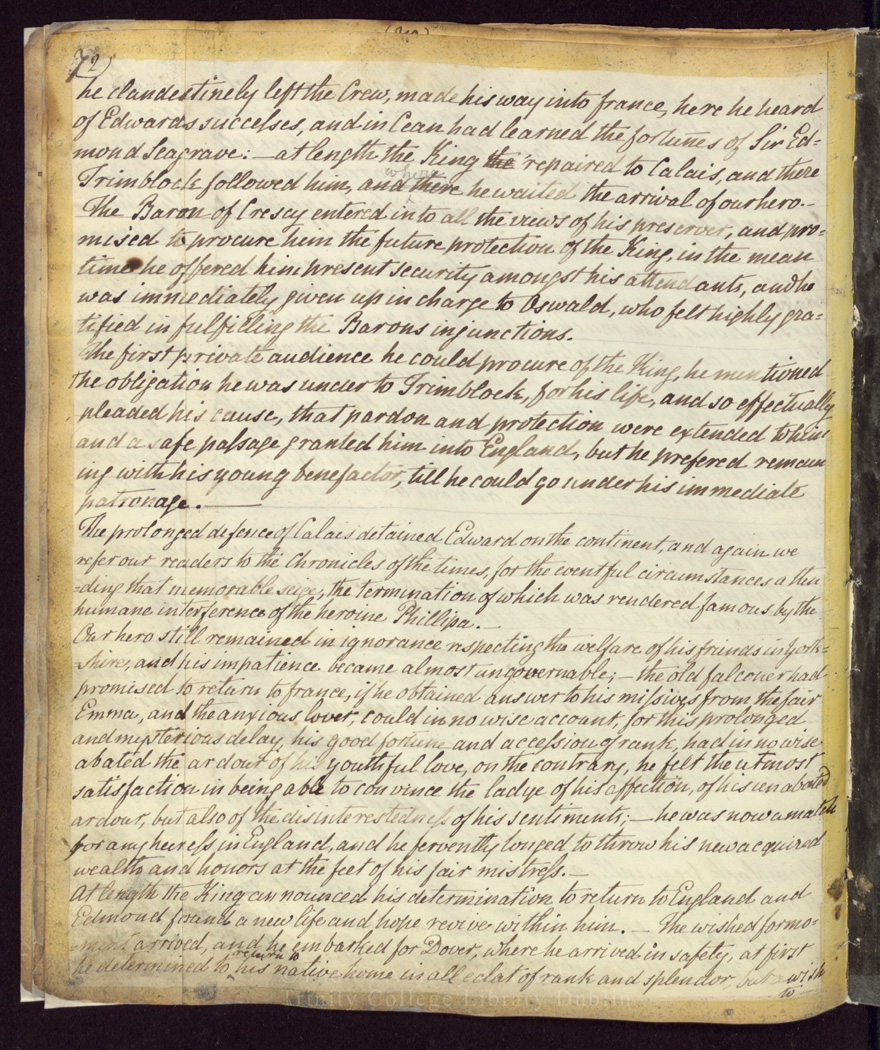 72)
he clandestinely left the Crew, made his way into france, here he heard
of Edwards successes, and in Cean had learned the fortunes of Sir Ed=
mond Seagrave: — at length the King the repaired to Calais, and there
where
Trimblock followed him, and there he waited the arrival of our hero. —
The Baron of Crescy entered into all the views of his preserver, and pro=
mised to procure him the future protection of the King, in the mean
time he offered him present security amongst his attendants, and he
was immediately given up in charge to Oswald, who felt highly gra=
tified in fulfilling the Barons injunctions.
The first private audience he could procure of the King, he mentioned
the obligation he was under to Trimblock, for his life, and so effectually
pleaded his cause, that pardon and protection were extended to him
and a safe passage granted him into England, but he prefered remain
ing with his young benefactor, till he could go under his immediate
patronage. —
The prolonged defence of Calais detained Edward on the continent, and again we
refer our readers to the Chronicles of the times, for the eventful circumstances atten
=ding that memorable seige, the termination of which was rendered famous by the
humane interference of the heroine Phillipa. —
Our hero still remained in ignorance respecting the welfare of his friends in York=
=shire, and his impatience became almost ungovernable; — the old falconer had
promised to return to france, if he obtained answer to his missives from the fair
Emma, and the anxious lover, could in no wise account, for his prolonged
and mysterious delay, his good fortune and accession of rank, had in no wise
abated the ardour of his youthful love, on the contrary, he felt the utmost
satisfaction in being able to convince the ladye of his affection, of his unabated
ardour, but also of the disinterestedness of his sentiments; — he was now a match
for any heiress in England, and he fervently longed to throw his new acquired
wealth and honors at the feet of his fair mistress. —
At length the King announced his determination to return to England and
Edmond found a new life and hope revive within him. — The wished for mo=
=ment arrived, and he embarked for Dover, where he arrived in safety, at first
return to
he determined to his native home in all eclat of rank and splendor but a wish
to
Trinity College Library Dublin